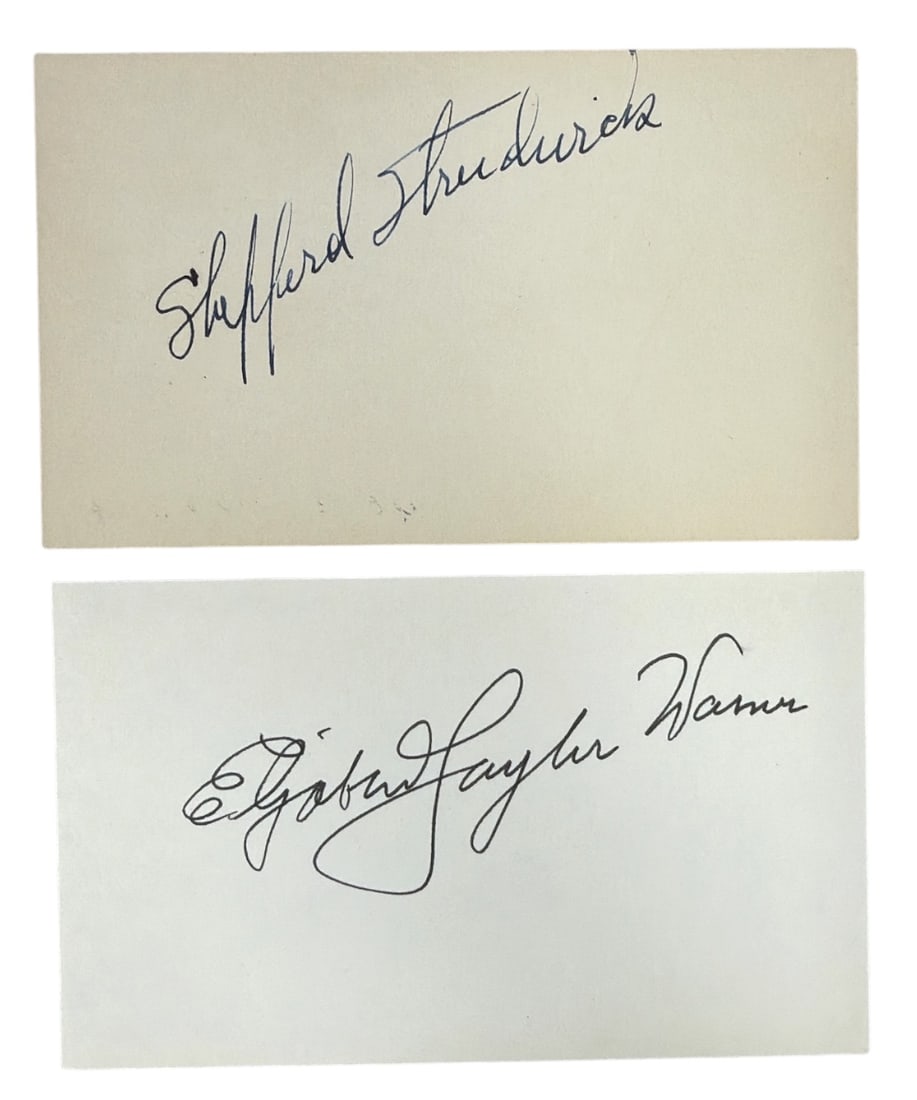 Shepperd Strudwick
Elizabeth Taylor Warner